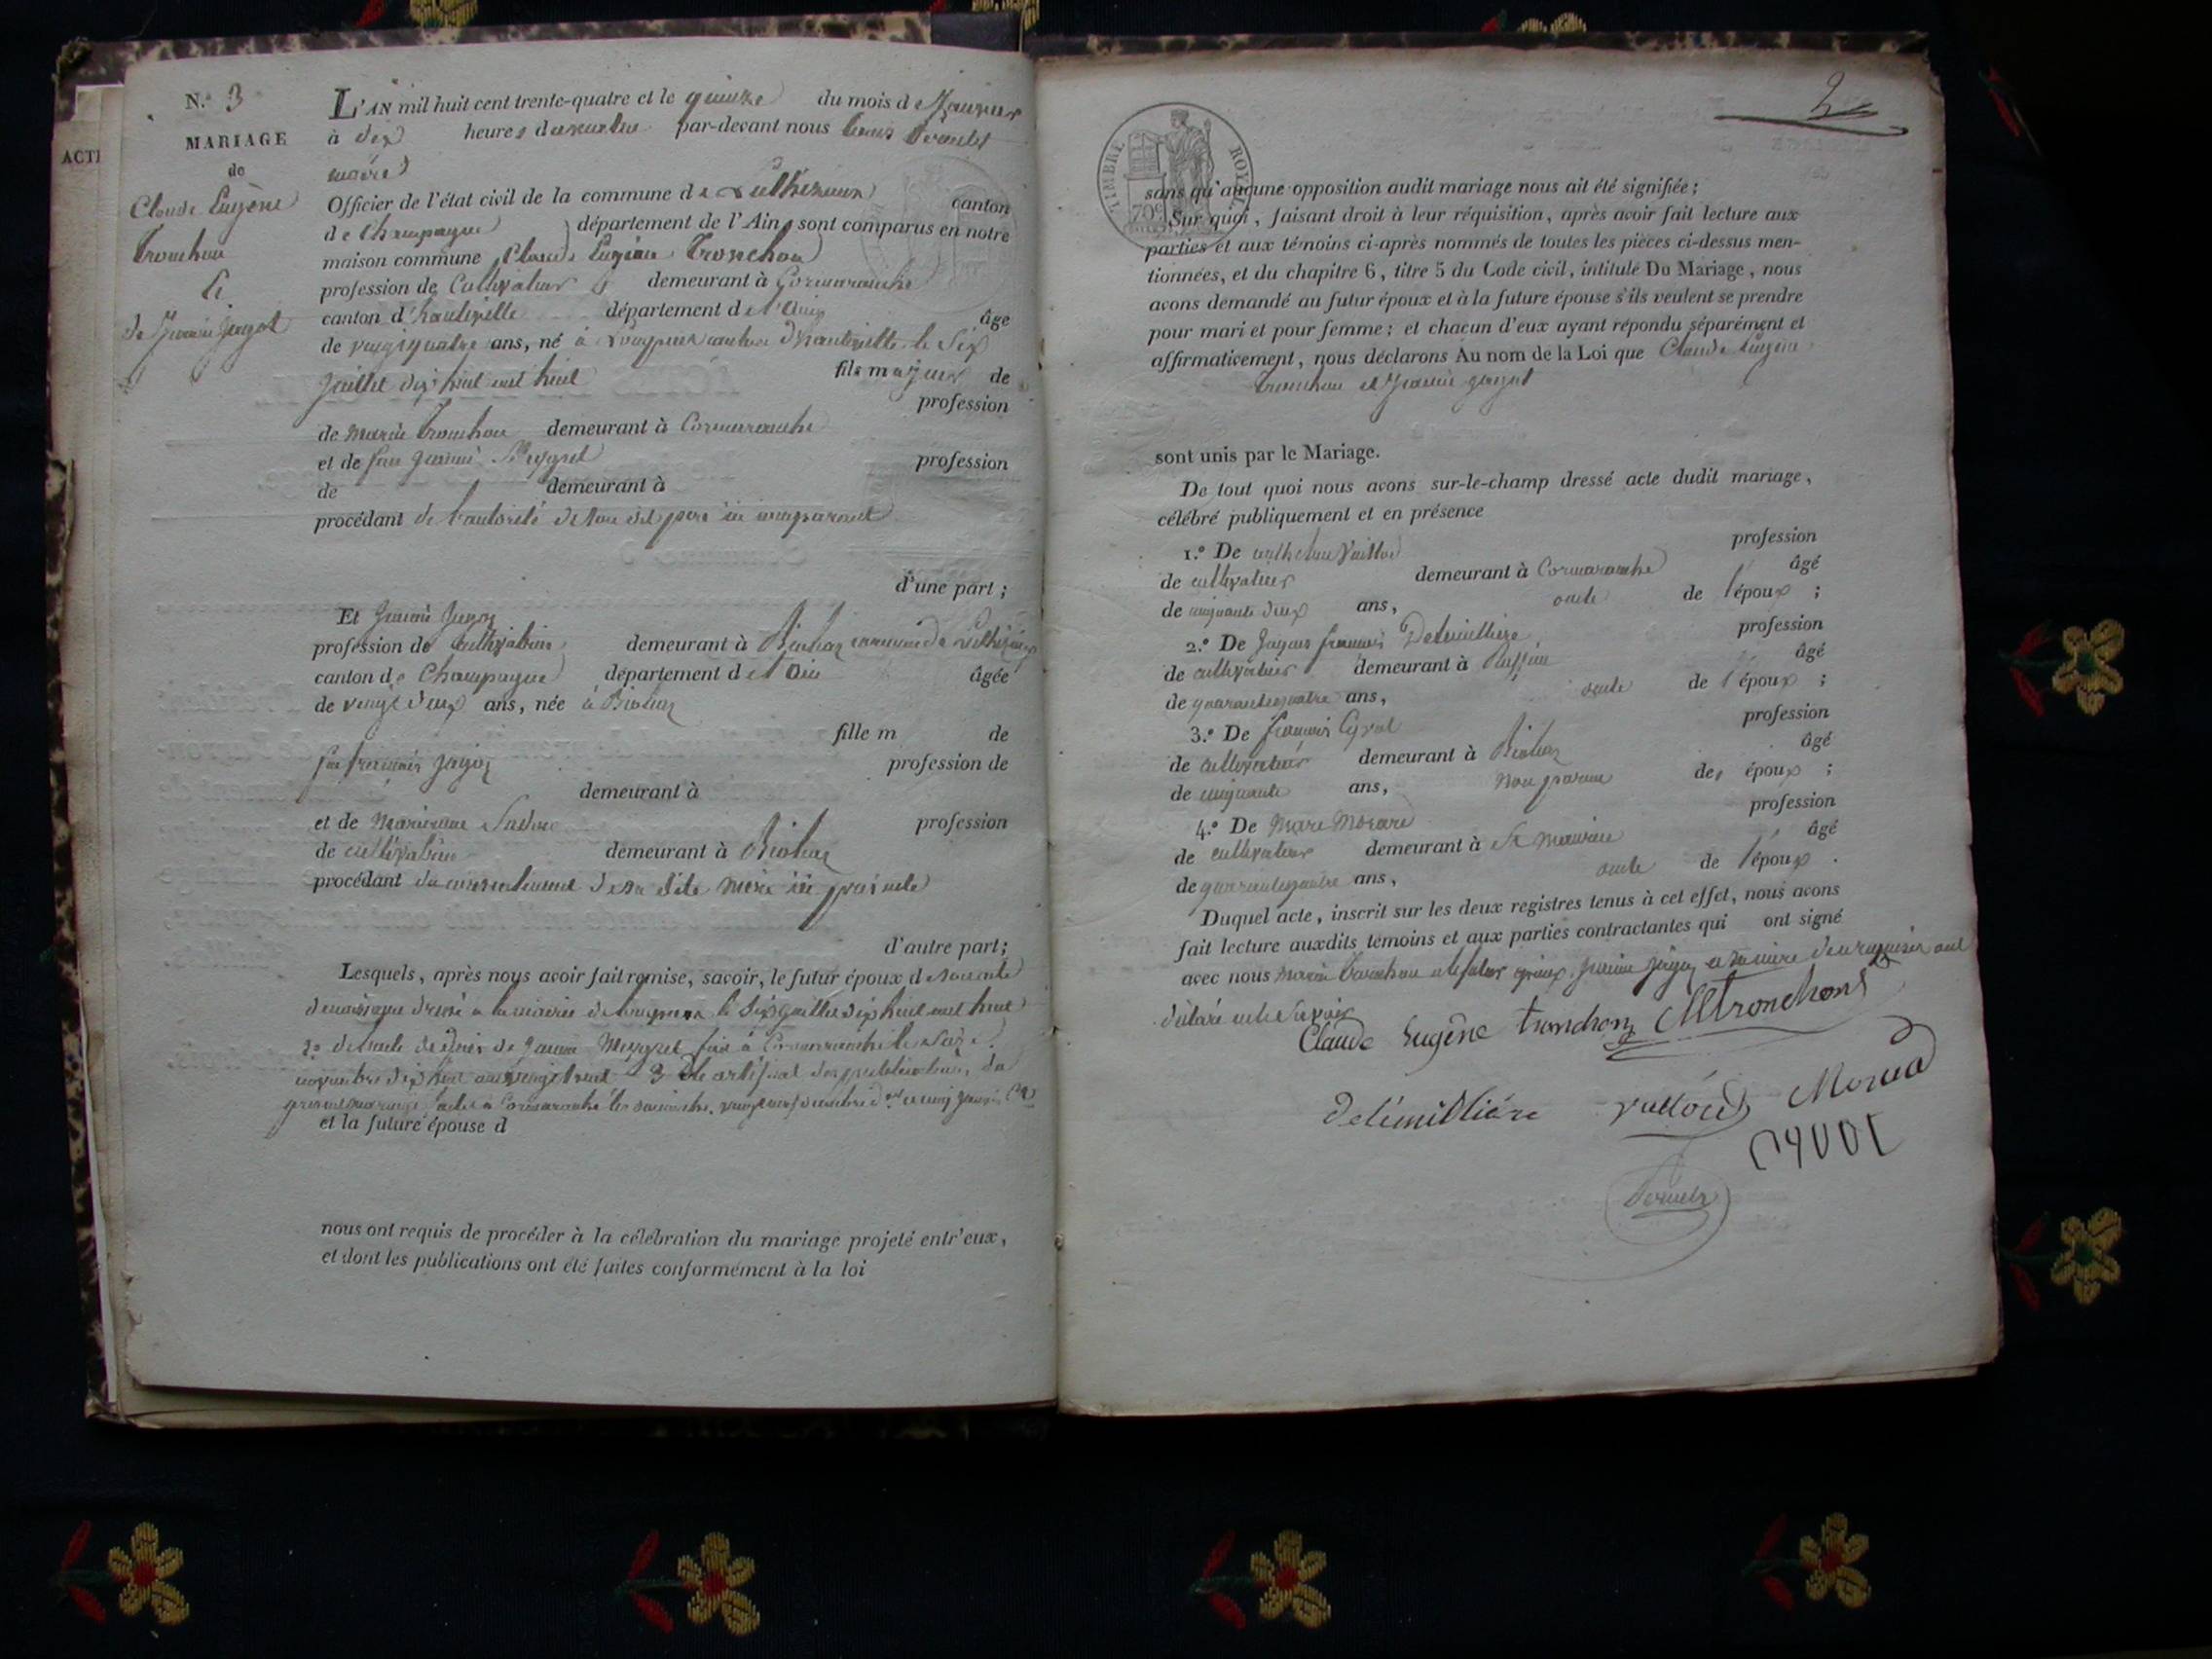 N.º 3
MARIAGE
de
Claude Eugène
Tronchon
&
de Jeannie Jugot
ACTE
L'AN mil huit cent trente-quatre et le quinze du mois de Janvier
à dix heures du matin par-devant nous Louis
maire
Officier de l'état civil de la commune de canton
de Champagne département de l'Ain, sont comparus en notre
maison commune Claude Eugène Tronchon
profession de Cultivateur demeurant à Cormaranche
canton d'hauteville département de l'Ain âgé
de vingt quatre ans, né à canton d'hauteville le six
juillet dix huit cent huit fils majeur de
profession
de Marin Tronchon demeurant à Cormaranche
et de feue profession
de demeurant à
procédant de l'autorité de son dit père ici comparant
d'une part ;
Et
profession de cultivatrice demeurant à commune de
canton de Champagne département de l'Ain âgée
de vingt deux ans, née à
fille m de
feu françois profession de
demeurant à
et de Marianne profession
de cultivatrice demeurant à
procédant du consentement de sa dite mère ici présente
d'autre part ;
Lesquels, après nous avoir fait remise, savoir, le futur époux de son acte
de naissance dressé à la mairie de le six juillet dix huit cent huit
2º de l'acte de décès de fait à Cormaranche le
novembre dix huit cent vingt huit 3º le certificat des publications du
présent mariage faites à Cormaranche les dimanche vingt neuf décembre et cinq janvier
et la future épouse d
nous ont requis de procéder à la célébration du mariage projeté entr'eux,
et dont les publications ont été faites conformément à la loi
2
TIMBRE ROYAL
70c
sans qu'aucune opposition audit mariage nous ait été signifiée ;
Sur quoi, faisant droit à leur réquisition, après avoir fait lecture aux
parties et aux témoins ci-après nommés de toutes les pièces ci-dessus men-
tionnées, et du chapitre 6, titre 5 du Code civil, intitulé Du Mariage, nous
avons demandé au futur époux et à la future épouse s'ils veulent se prendre
pour mari et pour femme ; et chacun d'eux ayant répondu séparément et
affirmativement, nous déclarons Au nom de la Loi que Claude Eugène
Tronchon et
sont unis par le Mariage.
De tout quoi nous avons sur-le-champ dressé acte dudit mariage,
célébré publiquement et en présence
1.º De profession
de cultivateur demeurant à Cormaranche âgé
de cinquante deux ans, oncle de l'époux ;
2.º De françois Delimillière profession
de cultivateur demeurant à âgé
de quarante quatre ans, oncle de l'époux ;
3.º De françois profession
de cultivateur demeurant à âgé
de cinquante ans, non parent des époux ;
4.º De Marc profession
de cultivateur demeurant à âgé
de quarante quatre ans, oncle de l'époux .
Duquel acte, inscrit sur les deux registres tenus à cet effet, nous avons
fait lecture auxdits témoins et aux parties contractantes qui ont signé
avec nous Marin Tronchon et le futur époux, et sa mère de ce requises ont
déclaré ne le savoir
Claude Eugène tronchon Mtronchon
delimillière Morard